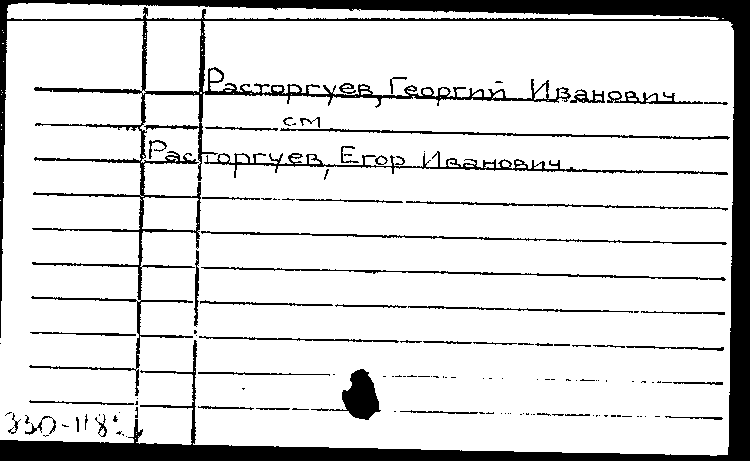 Расторгуев, Георгий Иванович
см
Расторгуев, Егор Иванович.